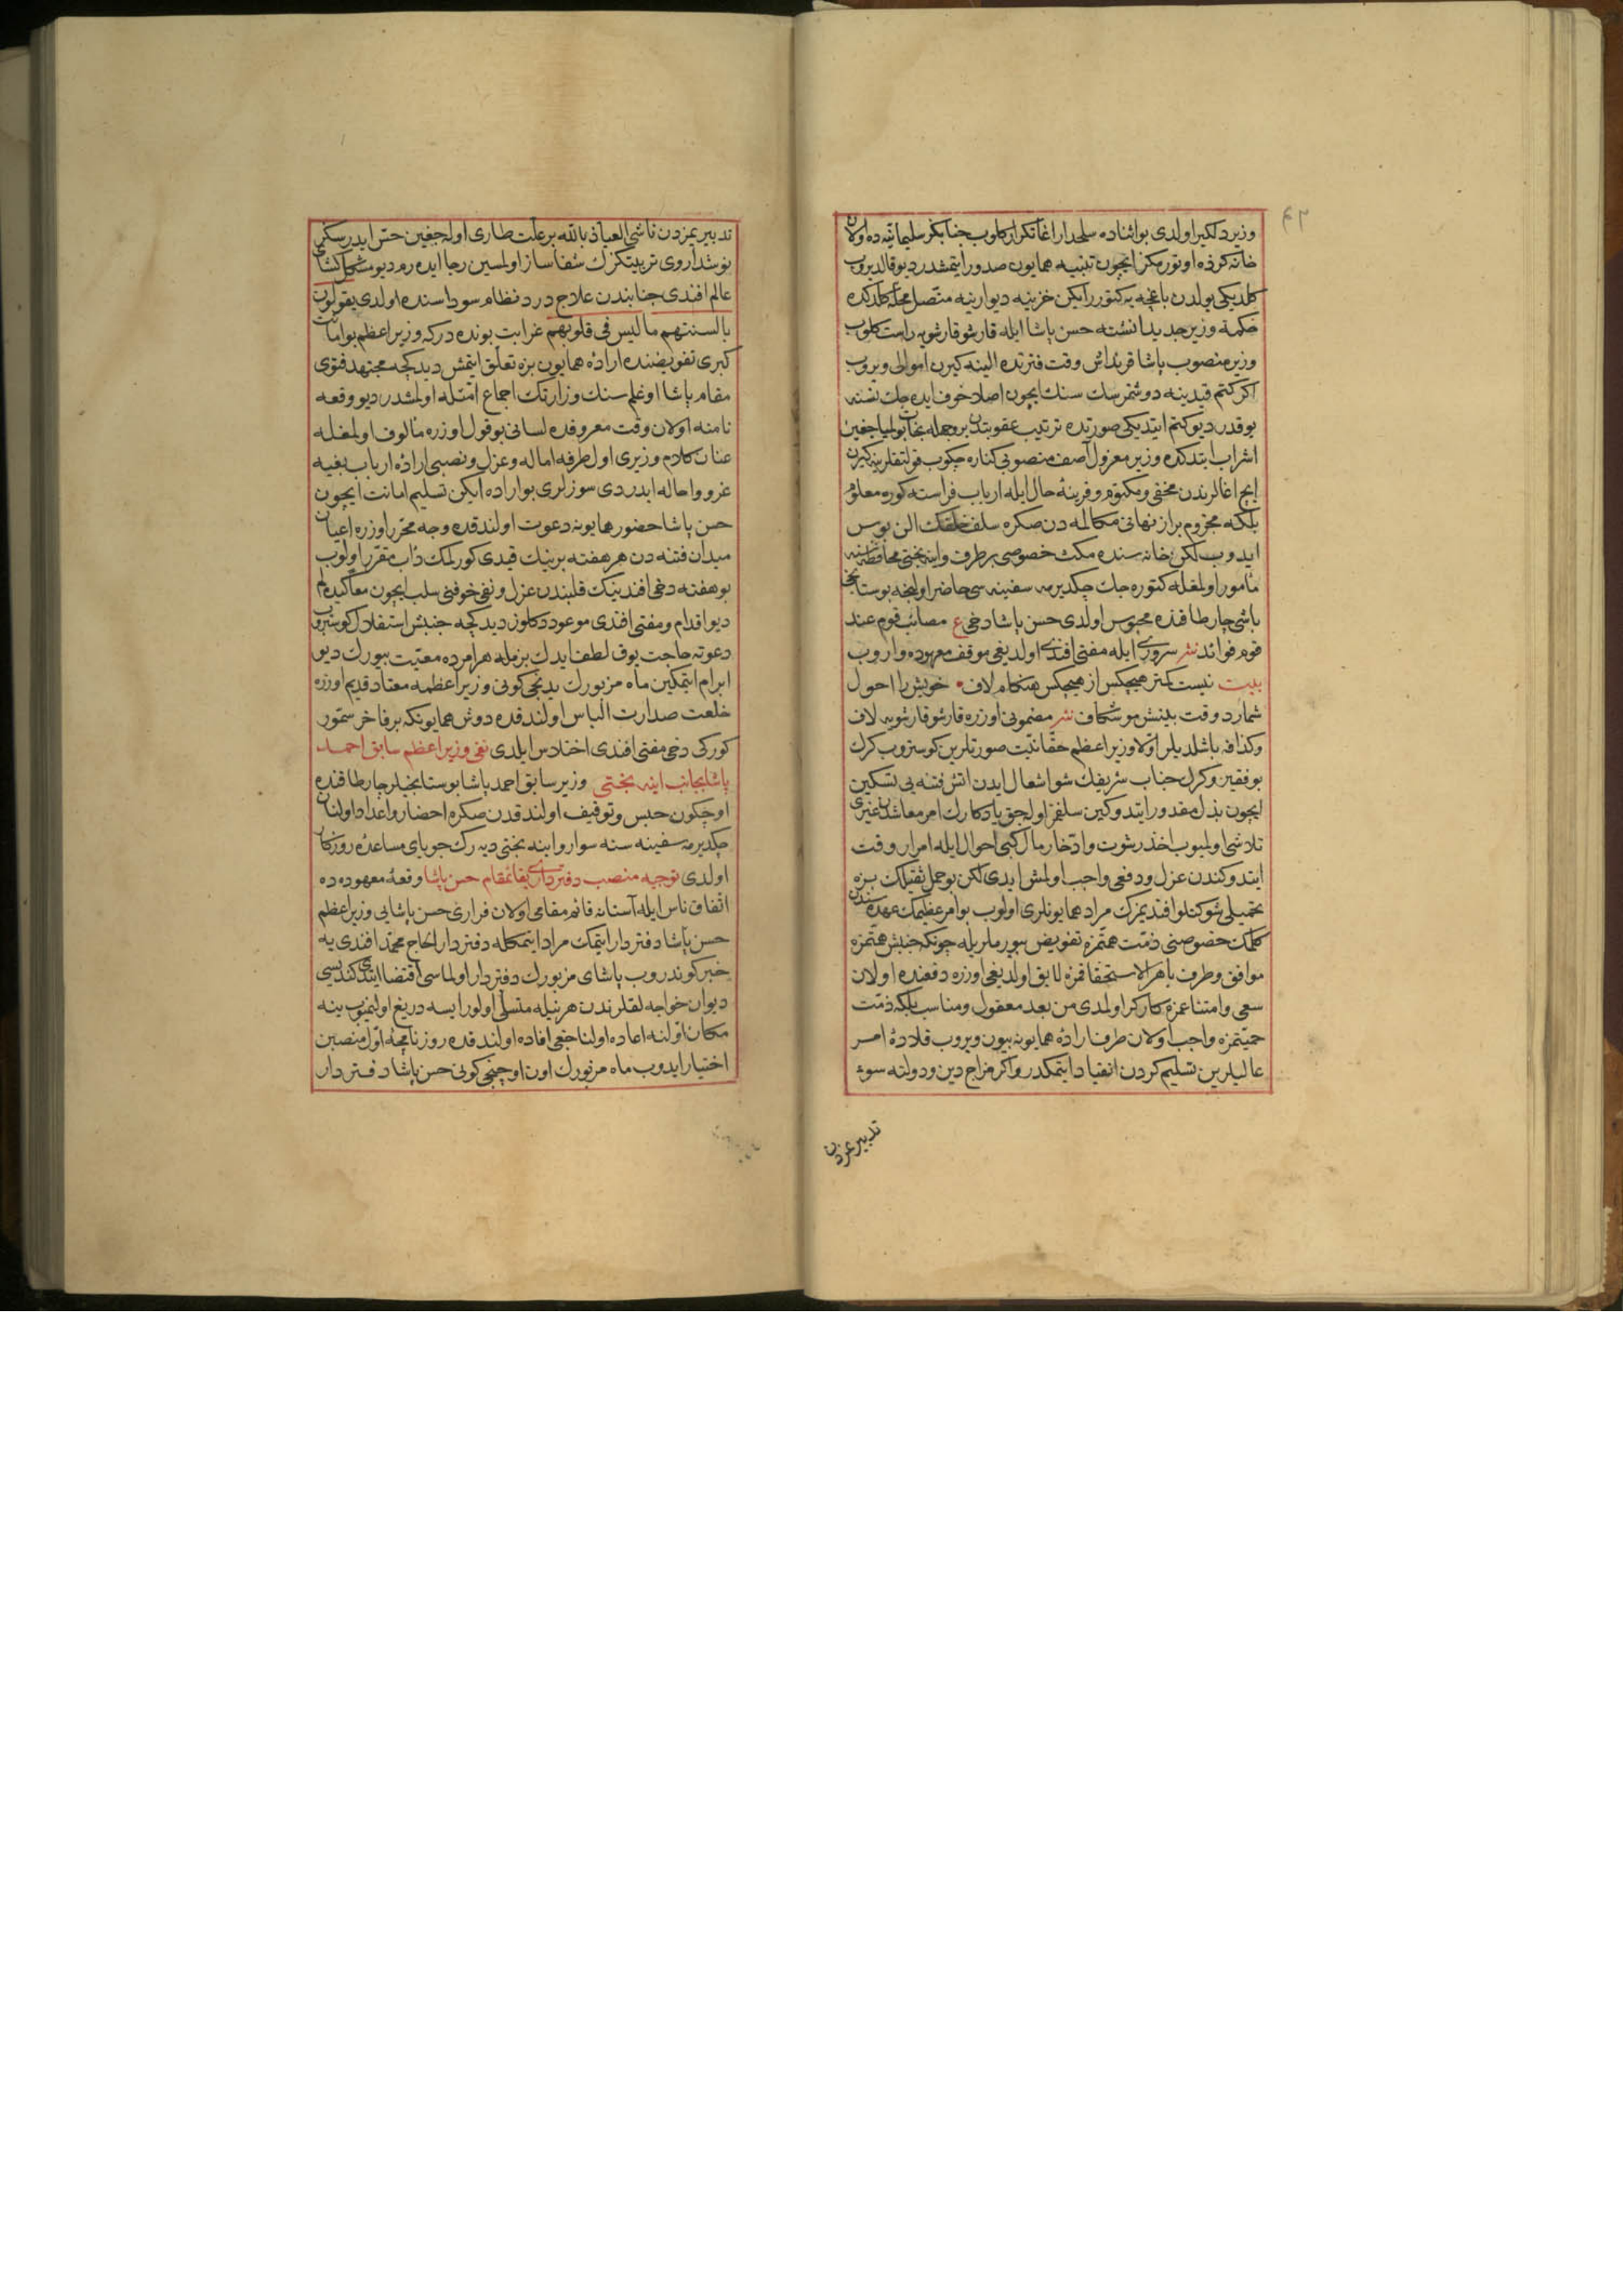 ٤٢
وزير دلكير اولدى بو اثناده سلحدار اغا تكرار كلوب جنابكز سليمانيه ده اولان
خانه كزده اوتورمكز ايچون تنبيه همايون صدور ايتمشدر ديو قالديروب
كلديكى يولدن باغچه يه كتورر ايكن خزينه ديوارينه متصل محله كلدكده
حكمة وزير جديدا نشئه حسن پاشا ايله قارشو قارشويه راست كلوب
وزير منصوب پاشا قرنداش وقت فترتده الينه كيرن اموالى ويروب
اكر كتم قيدينه دوشمزسك سنك ايچون اصلا خوف ايده جك نسنه
يوقدر ديو كتم ايتديكى صورتده ترتيب عقوبتدن بروجهله نجات بولمياجغين
اشراب ايتدكده وزير معزول آصف منصوبى كناره چكوب قولتقلرينه كيرن
ايچ اغالرندن مخفى ومكتوم وقرينه حال ايله ارباب فراسته كوره معلوم
بلكه مجزوم براز نهانى مكالمه دن صكره سلف خلفك الن بوس
ايدوب لكن خانه سنده مكث خصوصى برطرف واينه بختى محافظه سنه
مأمور اولمغله كتوره جك چكديرمه سفينه سى حاضر اولنجه بوستانجى
باشى چارطاقنده محبوس اولدى حسن پاشا دخى ع مصائب قوم عند
قوم فوائد نثر سرورى ايله مفتى افندى اولديغى موقف معهوده واروب
بيت نيست كمتر هيچكس از هيچكس هنكام لاف • خويش را احول
شمارد وقت بينش موشكاف نثر مضمونى اوزره قارشو قارشويه لاف
وكذافه باشلديلر اولا وزير اعظم حقانيت صورتلرين كوستروب كرك
بو فقير وكرك جناب شريفك شو اشعال ايدن اتش فتنه يى تسكين
ايچون بذل مقدور ايتدوكين سلفمز اوله جق يادكارك امر معاشدن غيرى
تلاشى اولميوب اخذ رشوت وادخار مال كبى احوال ايله امرار وقت
ايتدوكندن عزل ودفعى واجب اولمش ايدى لكن بو حمل ثقيلك بزه
تحميلى شوكتلو افنديمزك مراد همايونلرى اولوب بو امر عظيمك عهده سندن
كلمك خصوصنى ذمت همتمزه تفويض بيورملريله چونكه جنبش همتمزه
موافق وطرف باهر الاستحقاقمزه لايق اولديغى اوزره دفعنده اولان
سعى وامتناعمزه كاركر اولمدى من بعد معقول ومناسب بلكه ذمت
حميتمزه واجب اولان طرف اراده همايونه بيون ويروب قلاده امر
عاليلرين تسليم كردن انقياد ايتمكدر واكر مزاج دين ودولته سوء
تدبيرمزدن
تدبيريمزدن ناشى العياذ بالله بر علت طارى اوله جغين حس ايدرسكز
نوشداروى تربيتكزك شفاساز اولمسين رجا ايده رم ديو مشكل كشاى
عالم افندى جنابندن علاج درد نظام سوداسنده اولدى يقولون
بالسنتهم ما ليس فى قلوبهم غرابت بونده دركه وزير اعظم بو امانت
كبرى تفويضنده اراده همايون بزه تعلق ايتمش ديدكجه مجتهد فتوى
مقام پاشا اوغلم سنك وزارتك اجماع امتله اولمشدر ديو وقعه
نامنه اولان وقت معروفده لسانى بو قول اوزره مألوف اولمغله
عنان كلام وزيرى اول طرفه اماله وعزل ونصبى اراده ارباب بغيه
عزو واحاله ايدردى سوزلرى بو اراده ايكن تسليم امانت ايچون
حسن پاشا حضور همايونه دعوت اولندقده وجه محرر اوزره اعيان
ميدان فتنه دن هر هفته برينك قيدى كورلمك دأب مقرر اولوب
بو هفته دخى افندينك قلبندن عزل ونفى خوفنى سلب ايچون معا كيده لم
ديو اقدام ومفتى افندى موعود دكلوز ديدكجه جنبش استقلال كوستروب
دعوته حاجت يوق لطف ايدك بزمله هر امرده معيت بيورك ديو
ابرام ايتمكين ماه مزبورك يدنجى كونى وزير اعظمه معتاد قديم اوزره
خلعت صدارت الباس اولندقده دوش همايونكه بر فاخر سمور
كوركى دخى مفتى افندى اختلاس ايلدى نفى وزير اعظم سابق احمد
پاشا بجانب اينه بختى وزير سابق احمد پاشا بوستانجيلر چارطاقنده
اوچ كون حبس وتوقيف اولندقدن صكره احضار واعداد اولنان
چكديرمه سفينه سنه سوار واينه بختى ديه رك جوياى مساعده روزكار
اولدى توجيه منصب دفتردارى بقائمقام حسن پاشا وقعه معهوده ده
اتفاق ناس ايله آستانه قائم مقامى اولان فرارى حسن پاشايى وزير اعظم
حسن پاشا دفتردار ايتمك مراد ايتمكله دفتردار الحاج محمد افندى يه
خبر كوندروب پاشاى مزبورك دفتردار اولماسى اقتضا ايتدى كنديسى
ديوان خواجه لقلرندن هرنيله متسلى اولور ايسه دريغ اولنميوب ينه
مكان اولنه اعاده اولناجغى افاده اولندقده روزنامچه اول منصبن
اختيار ايدوب ماه مزبورك اون اوچنجى كونى حسن پاشا دفتردار